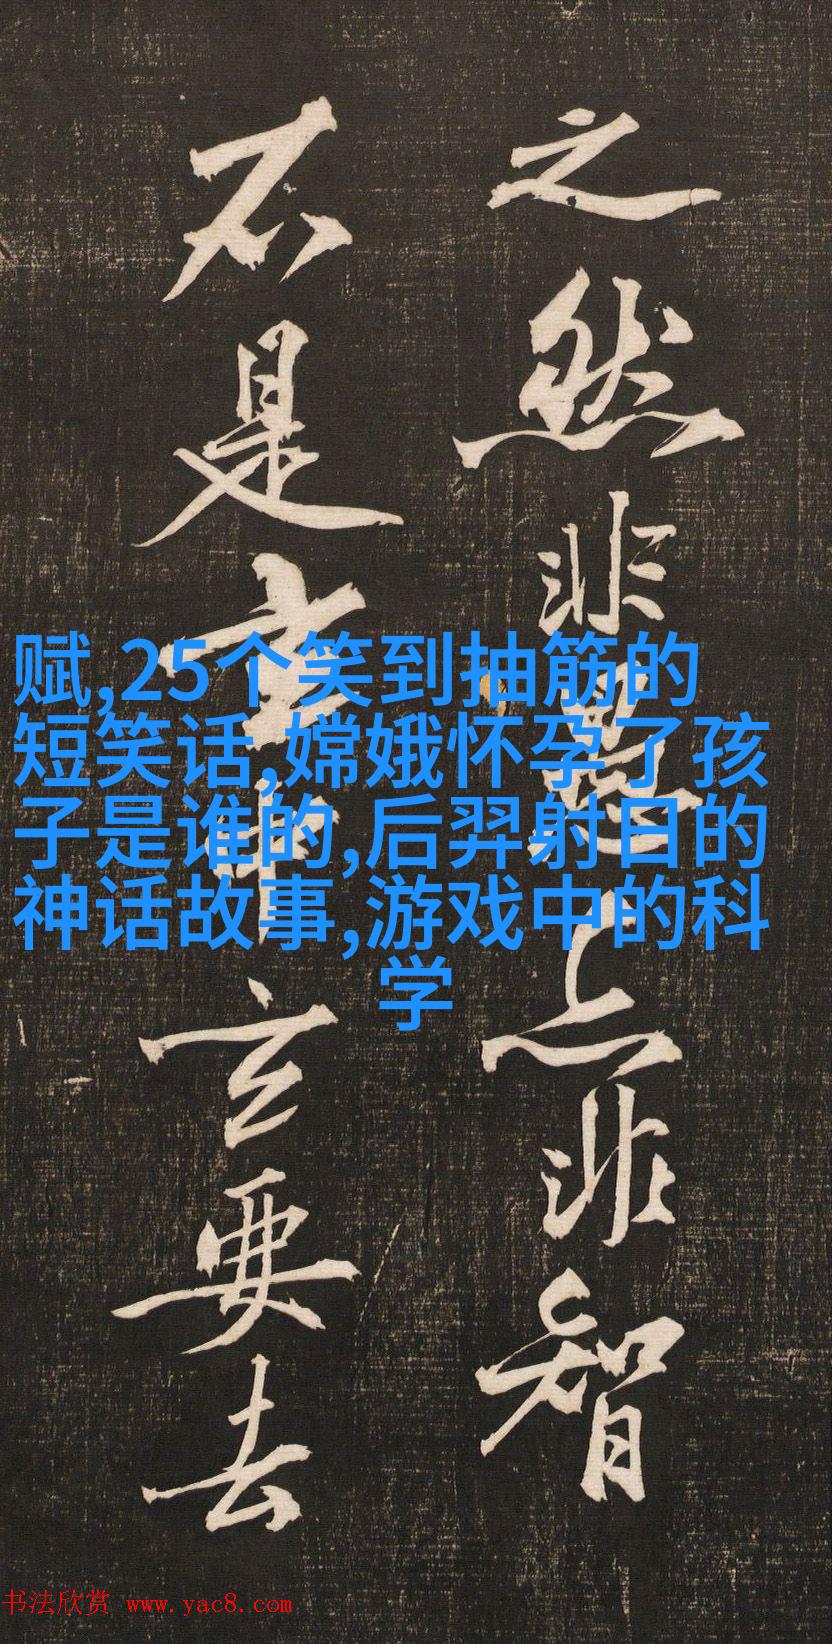 之然非愚上非智
不是玄中玄要去
赋,25个笑到抽筋的
短笑话,嫦娥怀孕了孩
子是谁的,后羿射日的
神话故事,游戏中的科
学
书法欣赏 www.yac8.com